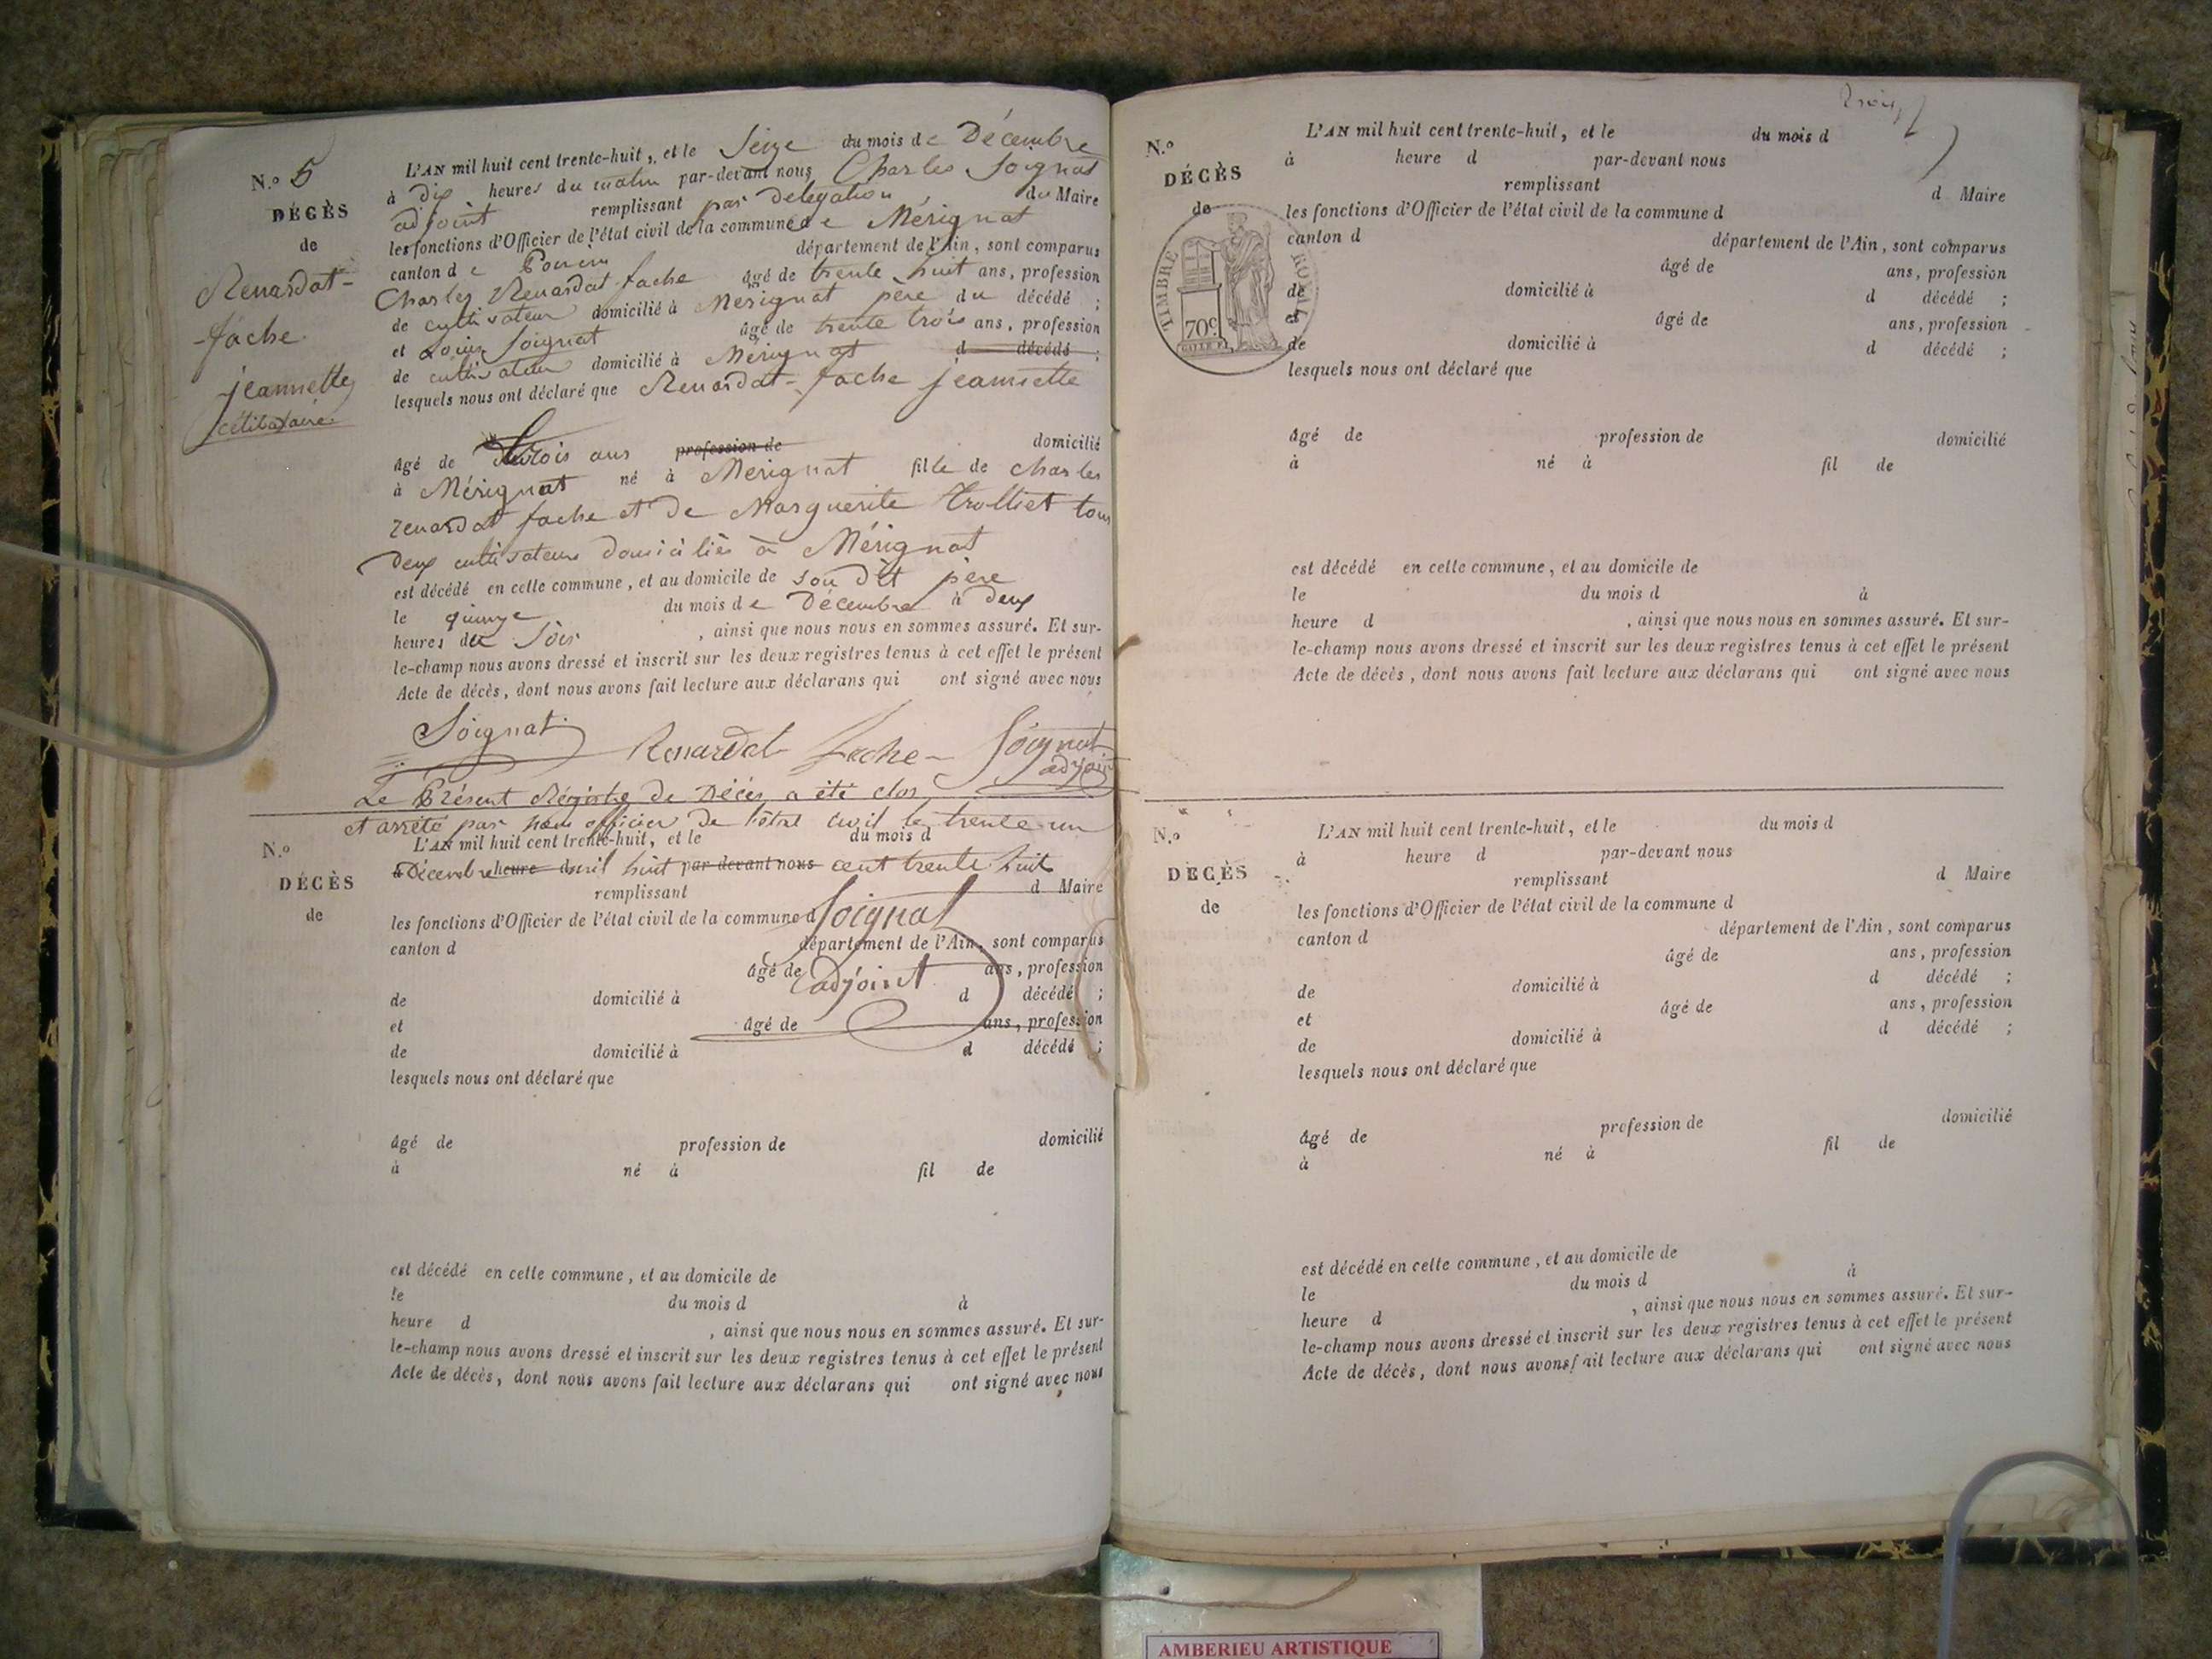 N.º 5
DÉCÈS
de
Renardat-
-fache
jeannette
célibataire
L'AN mil huit cent trente-huit, et le Seize du mois de Décembre
à dix heures du matin par-devant nous Charles Soignat
adjoint remplissant par délégation du Maire
les fonctions d'Officier de l'état civil de la commune de Mérignat
canton de Poncin département de l'Ain, sont comparus
Charles Renardat fache âgé de trente huit ans, profession
de cultivateur domicilié à Mérignat père du décédé ;
et Louis Soignat âgé de trente trois ans, profession
de cultivateur domicilié à Mérignat d décédé ;
lesquels nous ont déclaré que Renardat-fache jeannette
âgé de trois ans profession de domicilié
à Mérignat né à Mérignat fille de charles
renardat fache et de Marguerite Trolliet tous
deux cultivateurs domiciliés à Mérignat
est décédé en celle commune, et au domicile de son dit père
le quinze du mois de Décembre à deux
heures du soir , ainsi que nous nous en sommes assuré. Et sur-
le-champ nous avons dressé et inscrit sur les deux registres tenus à cet effet le présent
Acte de décès, dont nous avons fait lecture aux déclarans qui ont signé avec nous
Soignat Renardat fache Soignat
adjoint
Le Présent Régistre de Décès a été clos
et arrété par nous officier de l'état civil le trente un
N.º
DÉCÈS
de
L'AN mil huit cent trente-huit, et le du mois d
à Décembre heure d mil huit par-devant nous cent trente huit
remplissant d Maire
les fonctions d'Officier de l'état civil de la commune d Soignat
canton d département de l'Ain, sont comparus
âgé de adjoint ans, profession
de domicilié à d décédé ;
et âgé de ans, profession
de domicilié à d décédé ;
lesquels nous ont déclaré que
âgé de profession de domicilié
à né à fil de
est décédé en celle commune, et au domicile de
le du mois d à
heure d , ainsi que nous nous en sommes assuré. Et sur-
le-champ nous avons dressé et inscrit sur les deux registres tenus à cet effet le présent
Acte de décès, dont nous avons fait lecture aux déclarans qui ont signé avec nous
N.º
DÉCÈS
de
TIMBRE ROYAL
70c
L'AN mil huit cent trente-huit, et le du mois d
à heure d par-devant nous
remplissant d Maire
les fonctions d'Officier de l'état civil de la commune d
canton d département de l'Ain, sont comparus
âgé de ans, profession
de domicilié à d décédé ;
et âgé de ans, profession
de domicilié à d décédé ;
lesquels nous ont déclaré que
âgé de profession de domicilié
à né à fil de
est décédé en celle commune, et au domicile de
le du mois d à
heure d , ainsi que nous nous en sommes assuré. Et sur-
le-champ nous avons dressé et inscrit sur les deux registres tenus à cet effet le présent
Acte de décès, dont nous avons fait lecture aux déclarans qui ont signé avec nous
N.º
DÉCÈS
de
L'AN mil huit cent trente-huit, et le du mois d
à heure d par-devant nous
remplissant d Maire
les fonctions d'Officier de l'état civil de la commune d
canton d département de l'Ain, sont comparus
âgé de ans, profession
de domicilié à d décédé ;
et âgé de ans, profession
de domicilié à d décédé ;
lesquels nous ont déclaré que
âgé de profession de domicilié
à né à fil de
est décédé en celle commune, et au domicile de
le du mois d à
heure d , ainsi que nous nous en sommes assuré. Et sur-
le-champ nous avons dressé et inscrit sur les deux registres tenus à cet effet le présent
Acte de décès, dont nous avons fait lecture aux déclarans qui ont signé avec nous
AMBERIEU ARTISTIQUE